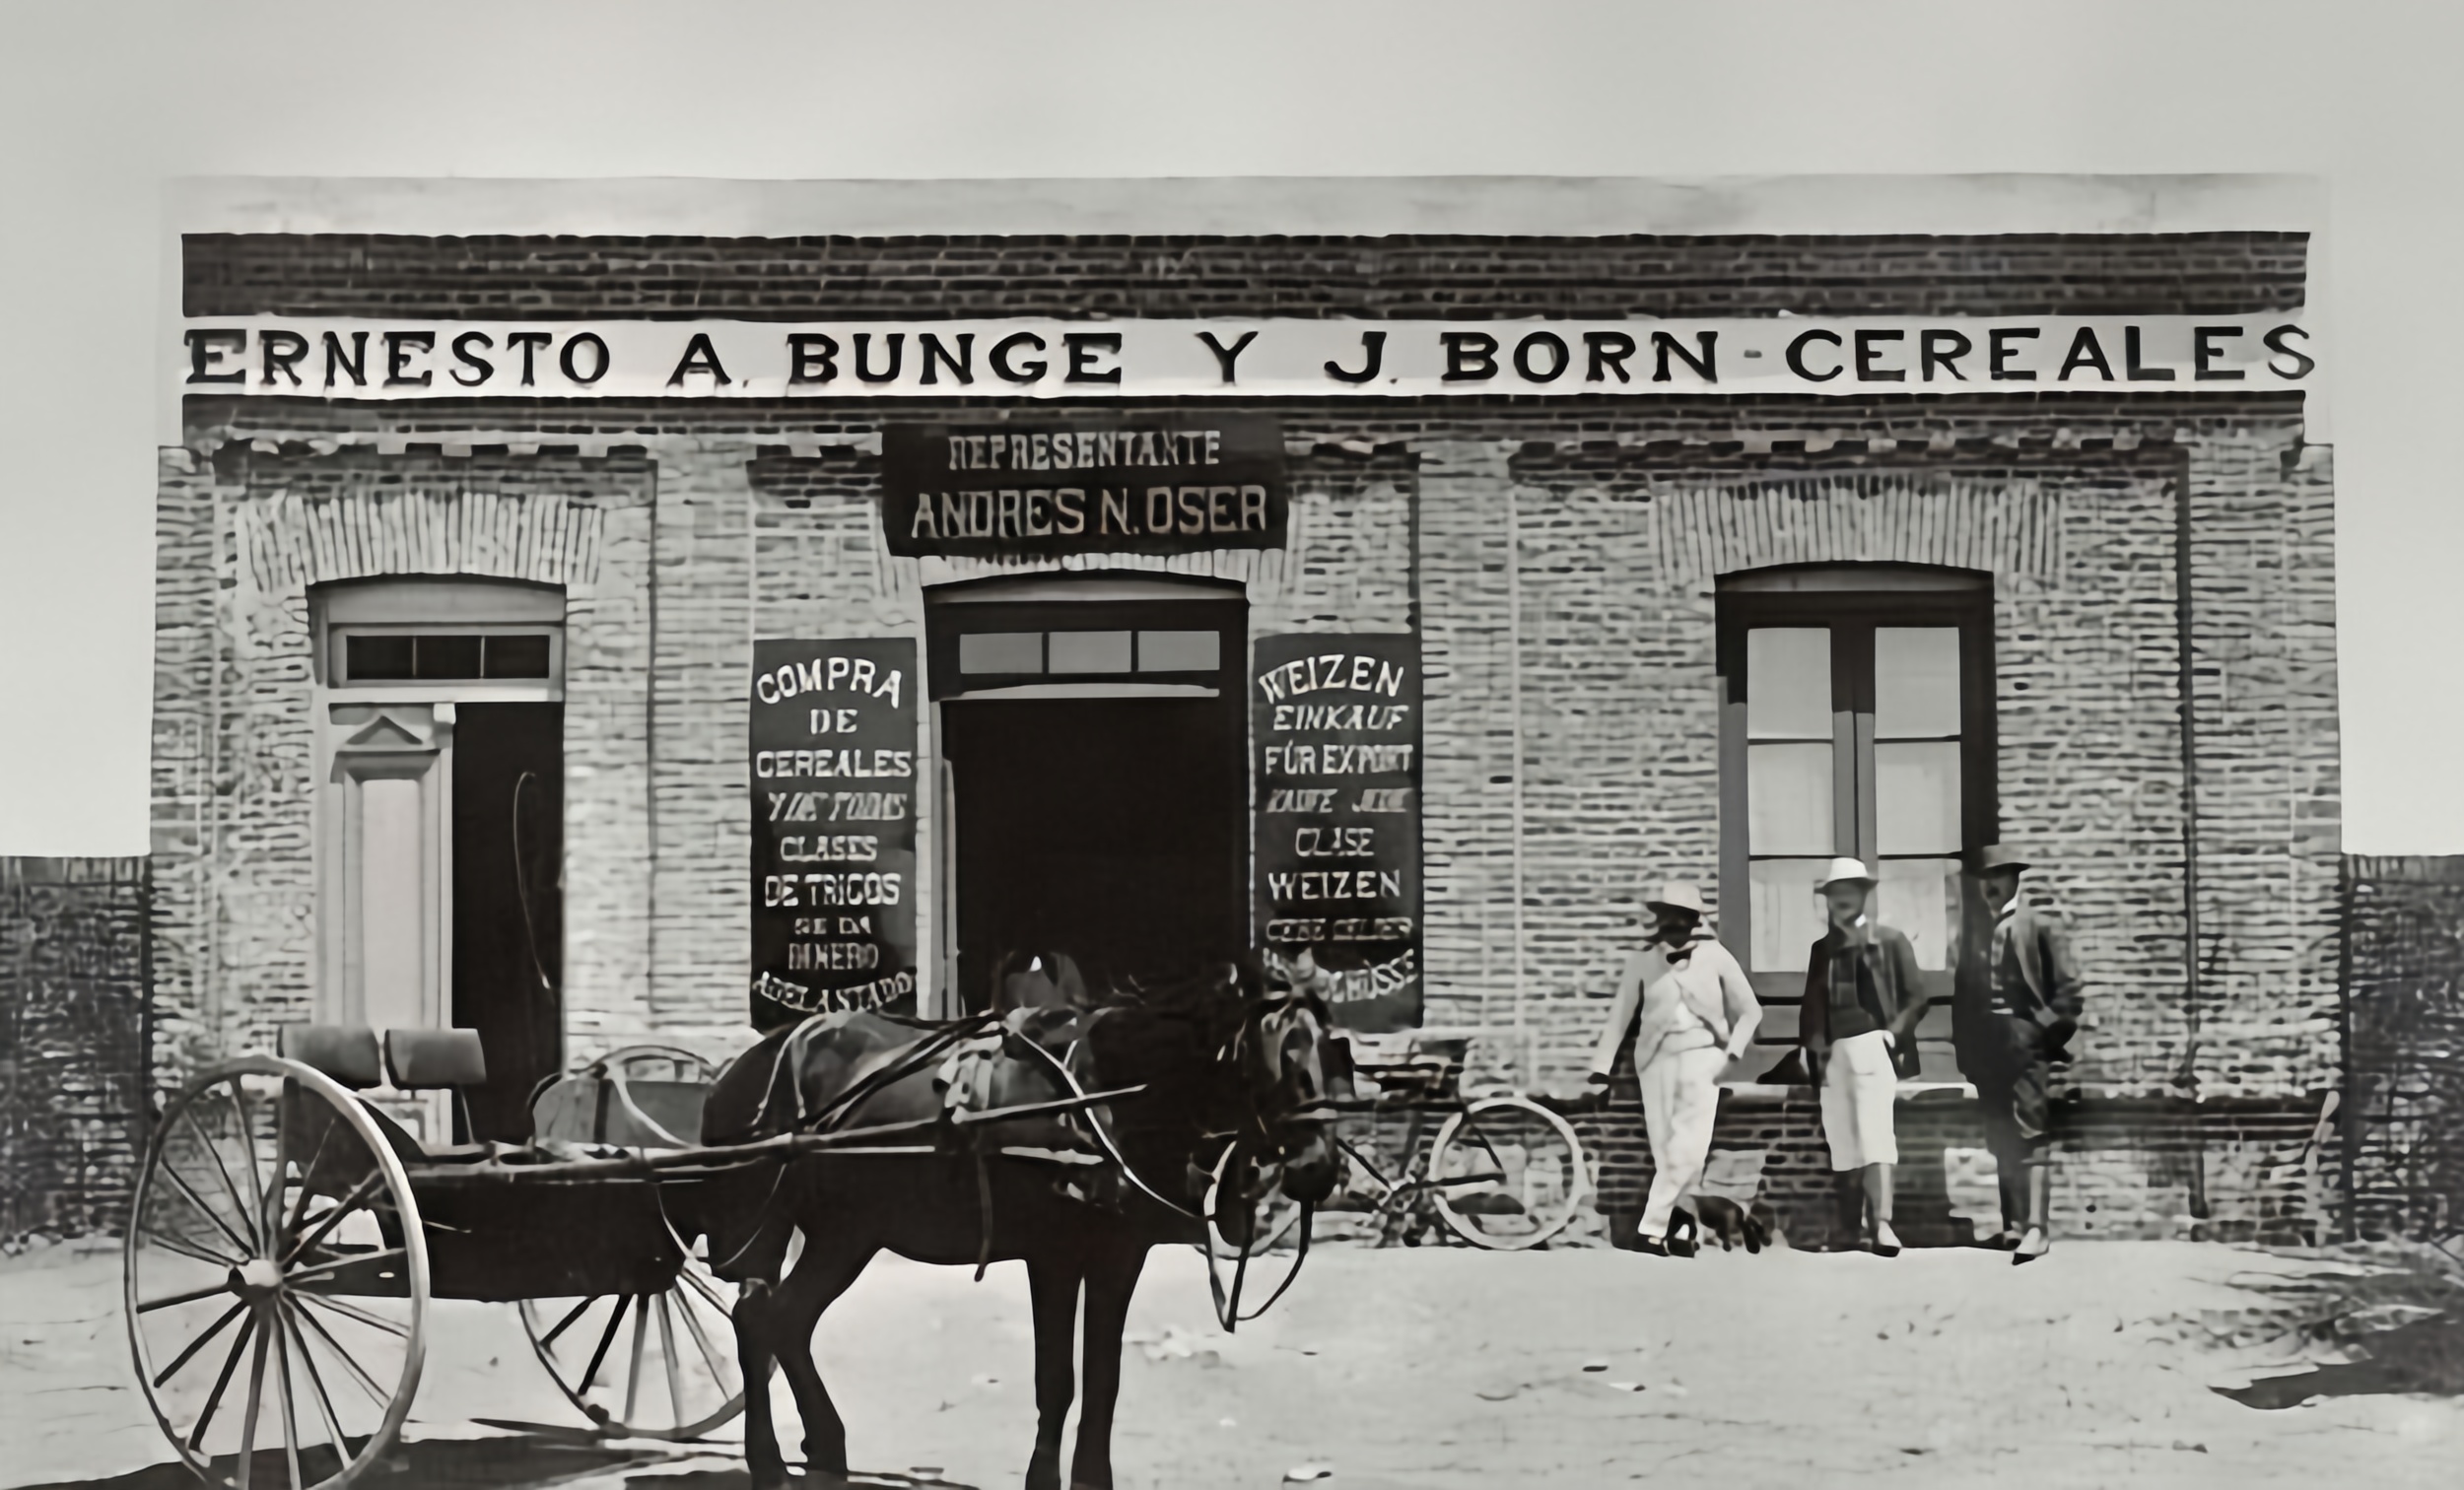 ERNESTO A. BUNGE Y J. BORN - CEREALES
REPRESENTANTE
ANDRES N. OSER
COMPRA
DE
CEREALES
CLASES
DE TRIGOS
SE DA
DINERO
ADELANTADO
WEIZEN
EINKAUF
FÜR EXPORT
CLASE
WEIZEN